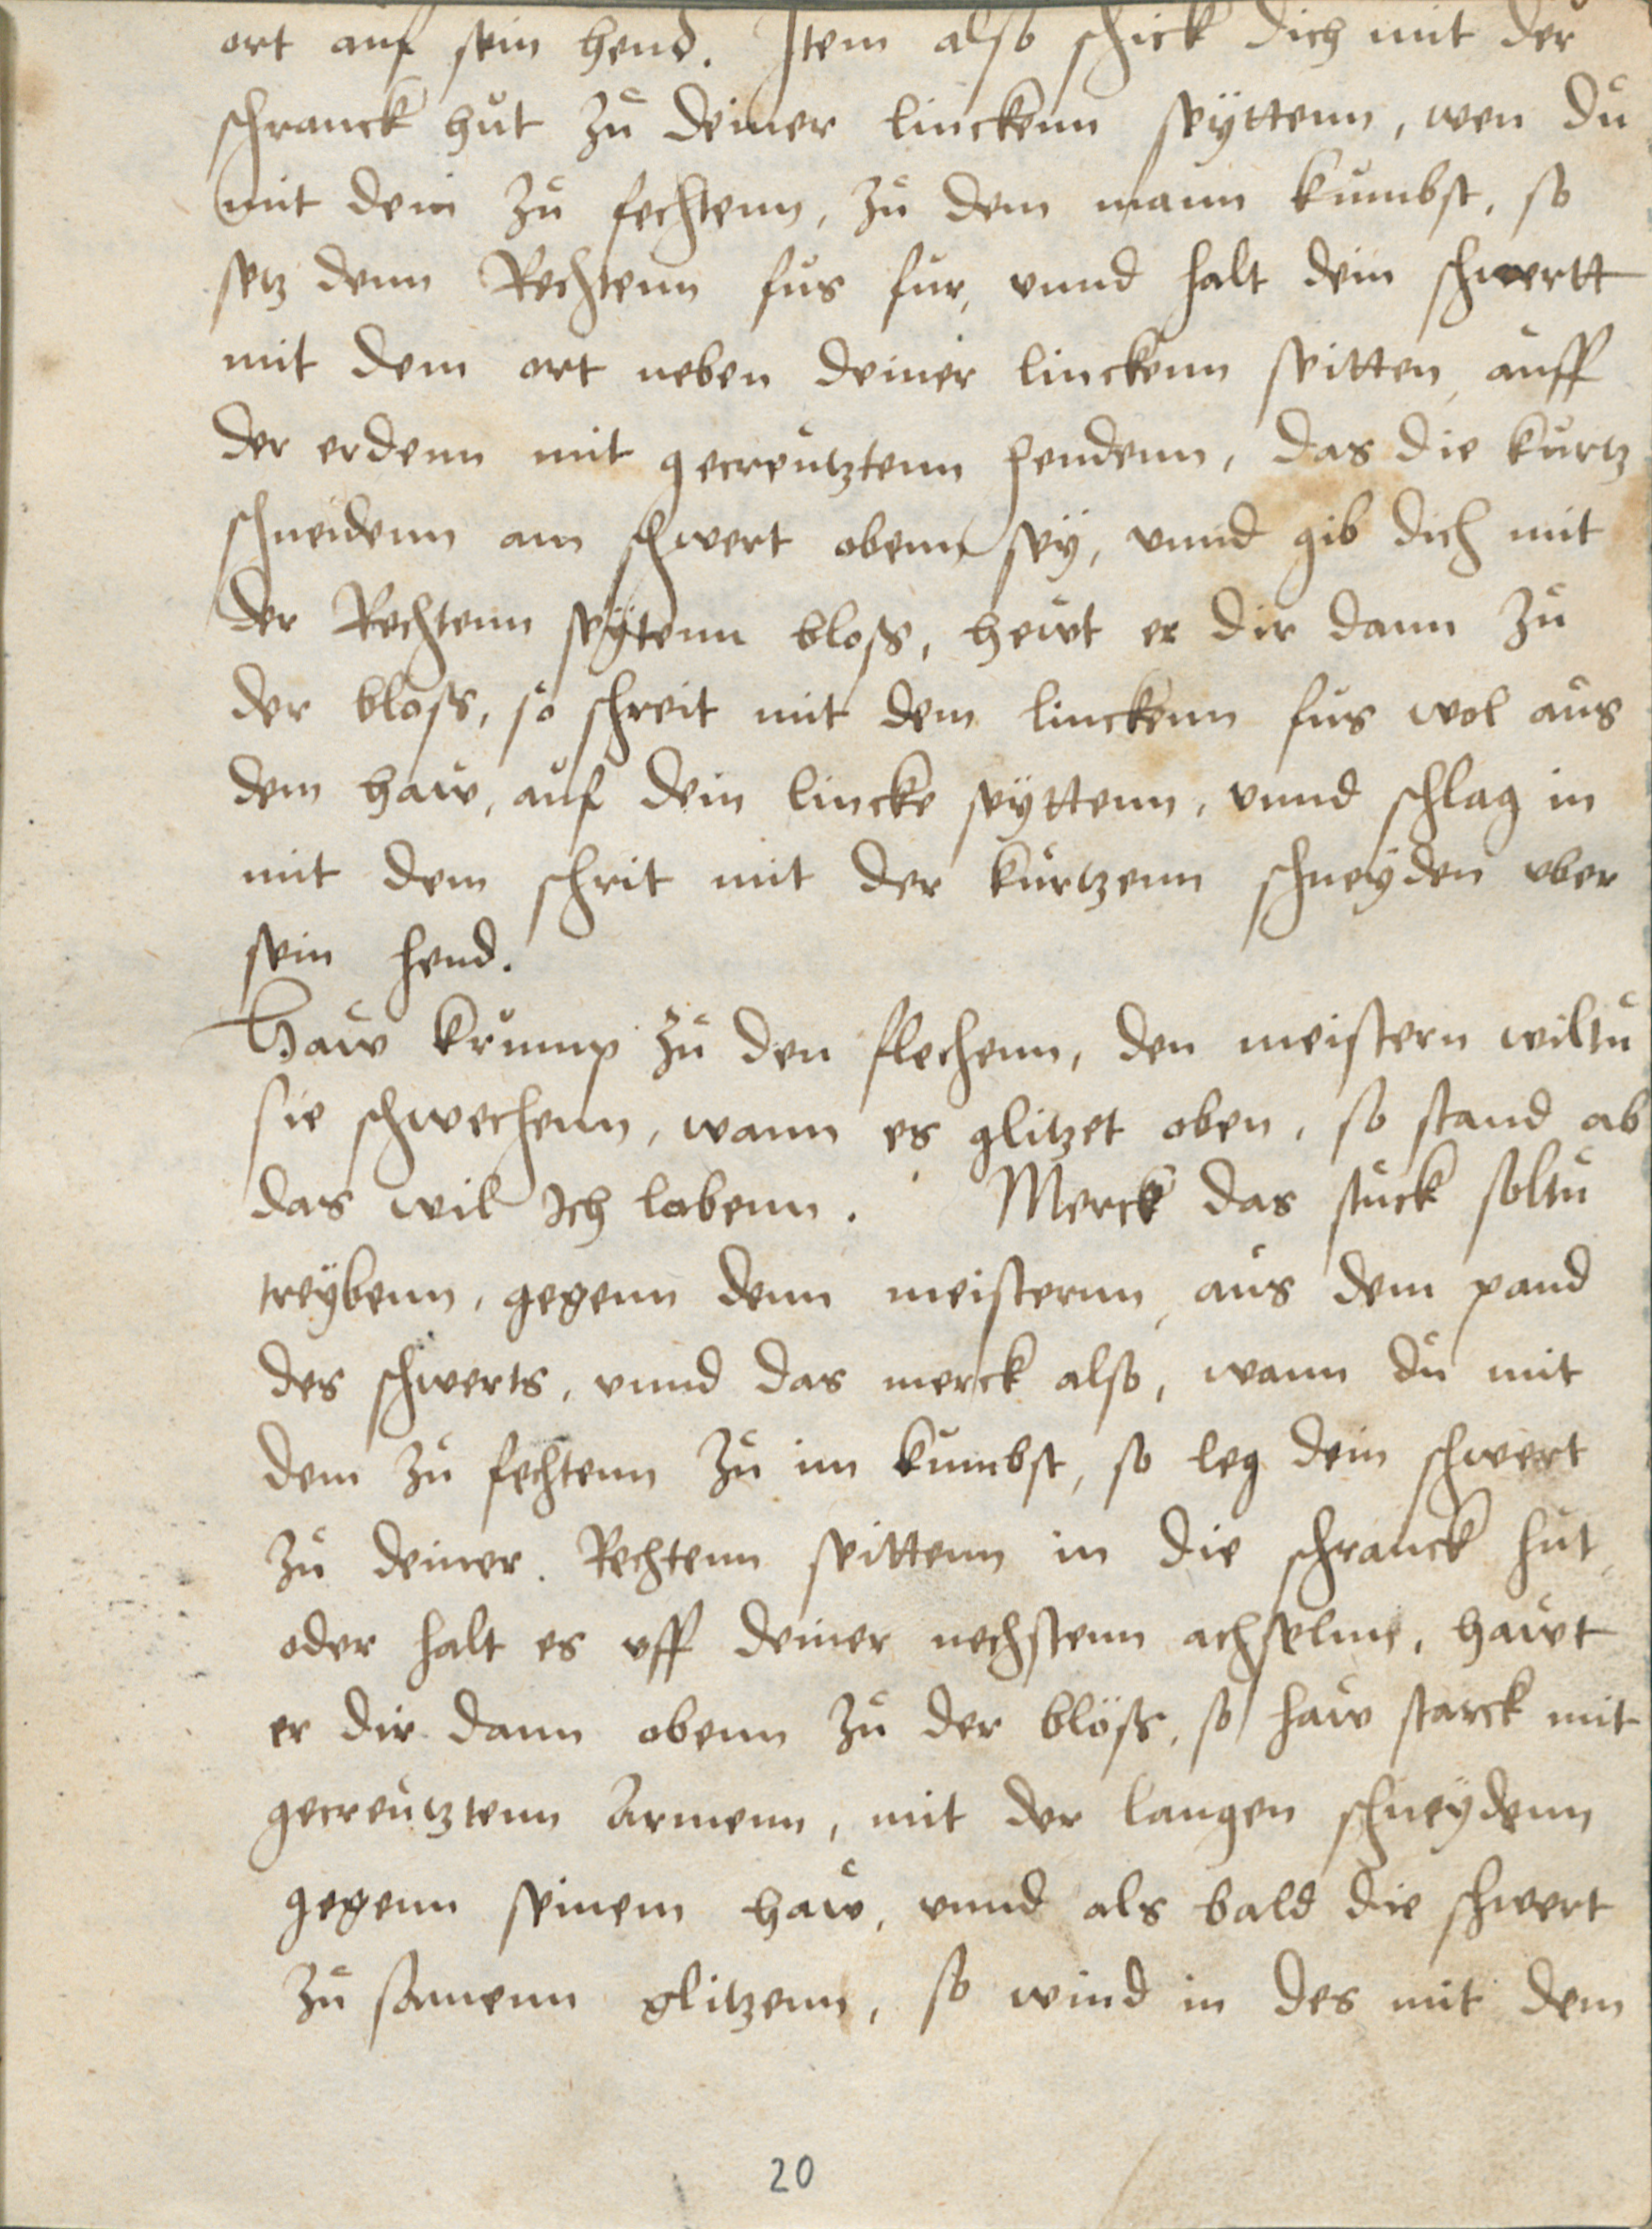 ort auf sein hend. Item also schick dich mit der
schranck hut zu deiner linckenn seyttenn, wen du
mit dem zu fechtenn, zu dem mann kumbst, so
setz denn Rechtenn fus fur, vnnd halt dein schwertt
mit dem ort neben deiner linckenn seitten, auff
der erdenn mit gecreutztenn hendenn, das die kurtz
schneidenn am schwert obenn sey, vnnd gib dich mit
der Rechtenn seytenn bloß, hewt er dir dann zu
der bloß, so schreit mit dem linckenn fus wol aus
dem haw, auf dein lincke seyttenn, vnnd schlag in
mit dem schrit mit der kurtzenn schneyden vber
sein hend.
Haw krump zu den flechenn, den meistern wiltu
sie schwechenn, wann es glitzet oben, so stand ab
das wil Ich lobenn. Merck das stuck soltu
treybenn, gegenn denn meisternn, aus dem pand
des schwerts, vnnd das merck also, wann du mit
dem zu fechtenn zu im kumbst, so leg dein schwert
zu deiner Rechtenn seittenn in die schranck hut,
oder halt es vff deiner nechstenn achselnn, hawt
er dir dann obenn zu der blöß, so haw starck mit
gecreutztenn Armenn, mit der langen schneydenn
gegenn seinem haw, vnnd als bald die schwert
zu samenn glitzenn, so wind in des mit dem
20